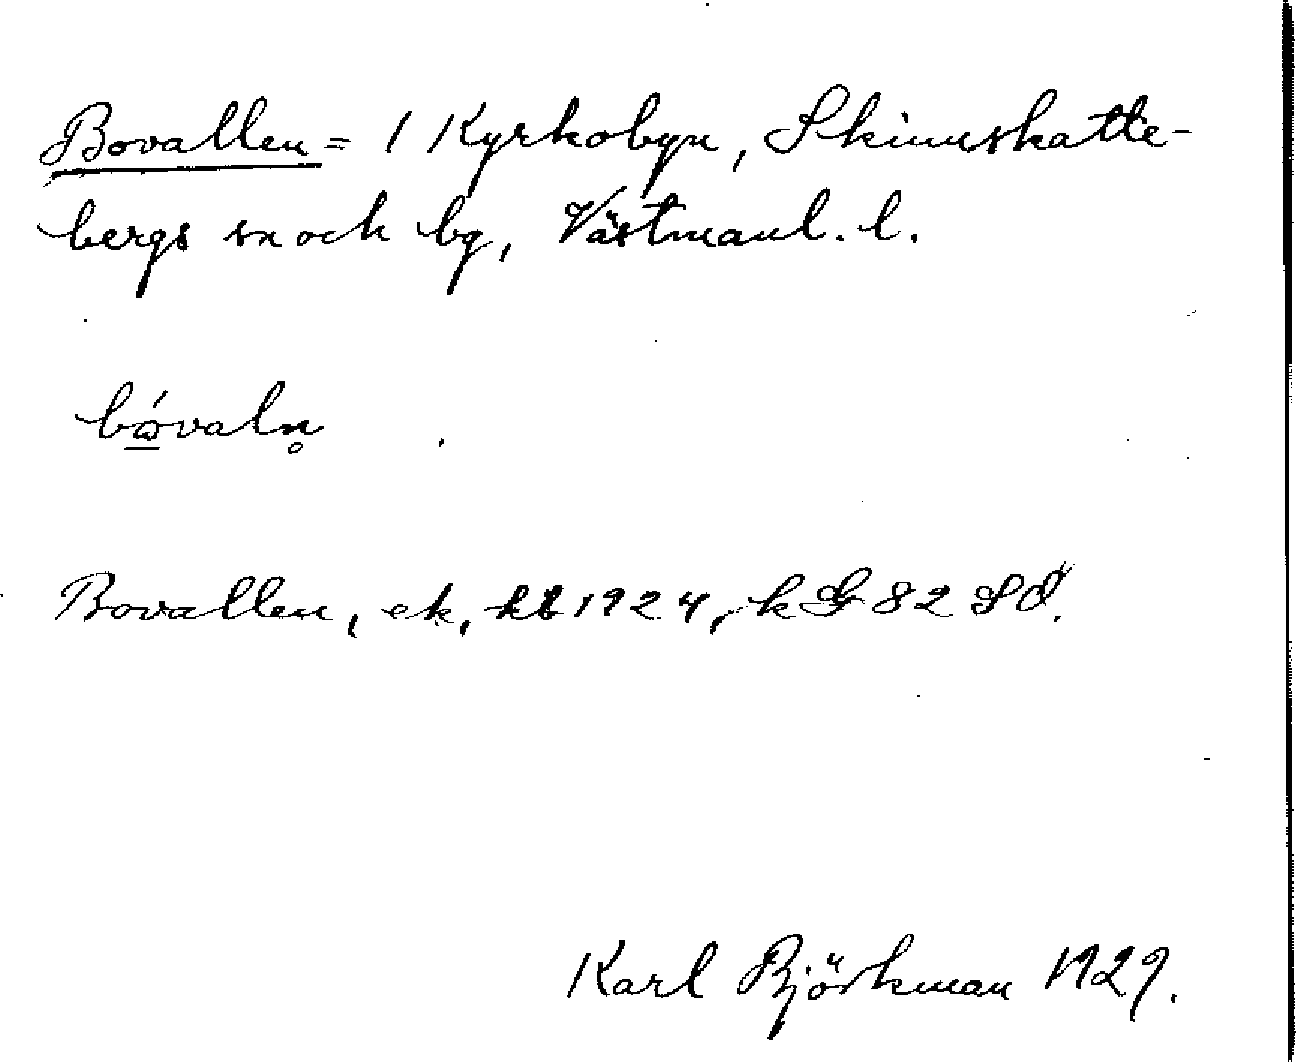 Bovallen = 1 Kyrkobyn, Skinnskatte-
bergs sn och bg, Västmanl. l.
bώ̲valn̥
Bovallen, ek, kb 1924, k G 82 SÖ.
Karl Björkman 1929.